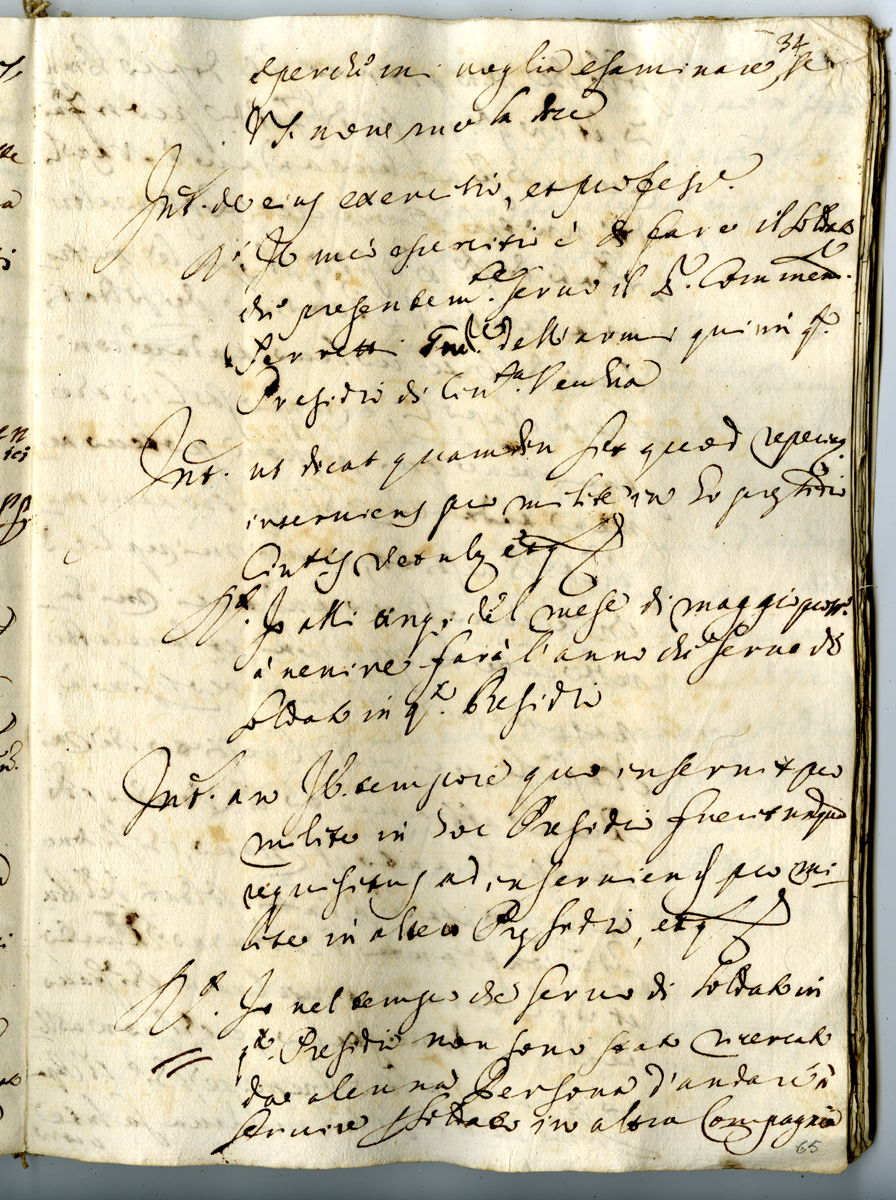 34
e perche mi voglia esaminare, se
V.S. non me lo dice
Int. de eius exercitio, et profess.e
R. Io mio esercitio è di fare il soldato
che presentem.te servo il S. Commen.
Ferretti dell'armi qui in q.o
Presidio di Civ.ta Vecchia
Int. ut dicat quamdiu sit quod reperitur
inserviens pro milite in hoc presidio
Civit.is Vetulae etc
R. Io alli cinq. del mese di maggio pross.
à venire farà l'anno che servo di
soldato in q.to Presidio
Int. an tempore quo inservit pro
milite in hoc Presidio fuerit unquam
requisitus ad inserviend pro mi-
lite in altero Presidio, etc
R. Io nel tempo che servo di soldato in
q.to Presidio non sono stato ricercato
da alcuna Persona d'andare à
servire soldato in altra Compagnia
65